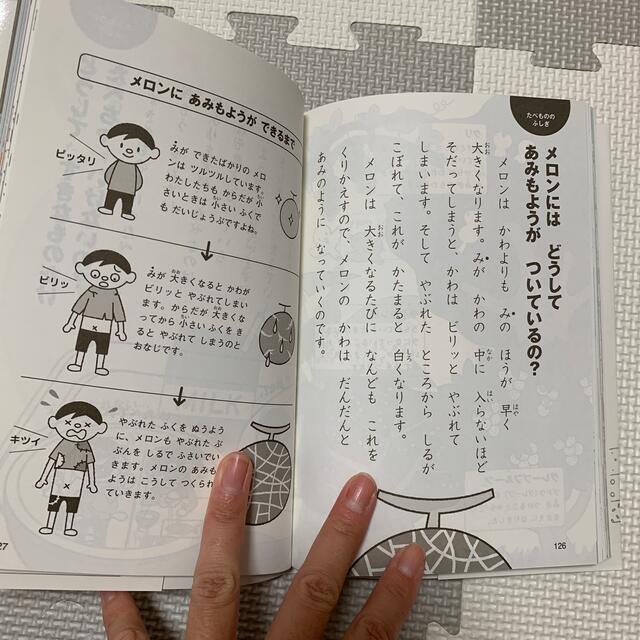 たべものの
ふしぎ
メロンには どうして
あみもようが ついているの?
メロンは かわよりも みの ほうが 早く
大きくなります。みが かわの 中に 入らないほど
そだってしまうと、かわは ビリッと やぶれて
しまいます。そして やぶれた ところから しるが
こぼれて、これが かたまると 白くなります。
メロンは 大きくなるたびに なんども これを
くりかえすので、メロンの かわは だんだんと
あみのように なっていくのです。
126
メロンに あみもようが できるまで
ピッタリ
みが できたばかりの メロ
ンは ツルツルしています。
わたしたちも からだが 小
さいときは 小さい ふくで
も だいじょうぶですよね。
ビリッ
みが 大きくなると かわが
ビリッと やぶれてしまい
ます。からだが 大きくな
ってから 小さい ふくを き
ると やぶれて しまうのと
おなじです。
キツイ
やぶれた ふくを ぬうよう
に、メロンも やぶれた ぶ
ぶんを しるで ふさいでい
きます。メロンの あみも
ようは こうして つくられ
ていきます。
27